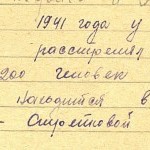 1941 года у
расстрелял
200 человек
находится в
- Смретовой